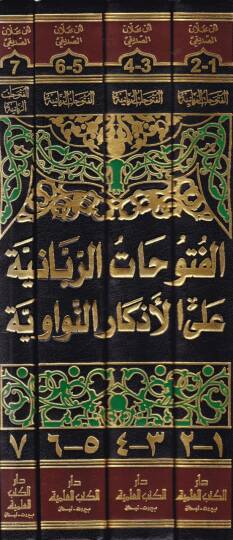 ابن علان الصديقي
ابن علان الصديقي
ابن علان الصديقي
ابن علان الصديقي
1-2
3-4
5-6
7
الفتوحات الربانية
الفتوحات الربانية
الفتوحات الربانية
الفتوحات الربانية
الفتوحات الربانية
على الأذكار النواوية
١-٢
٣-٤
٥-٦
٧
دار
الكتب العلمية
بيروت - لبنان
دار
الكتب العلمية
بيروت - لبنان
دار
الكتب العلمية
بيروت - لبنان
دار
الكتب العلمية
بيروت - لبنان